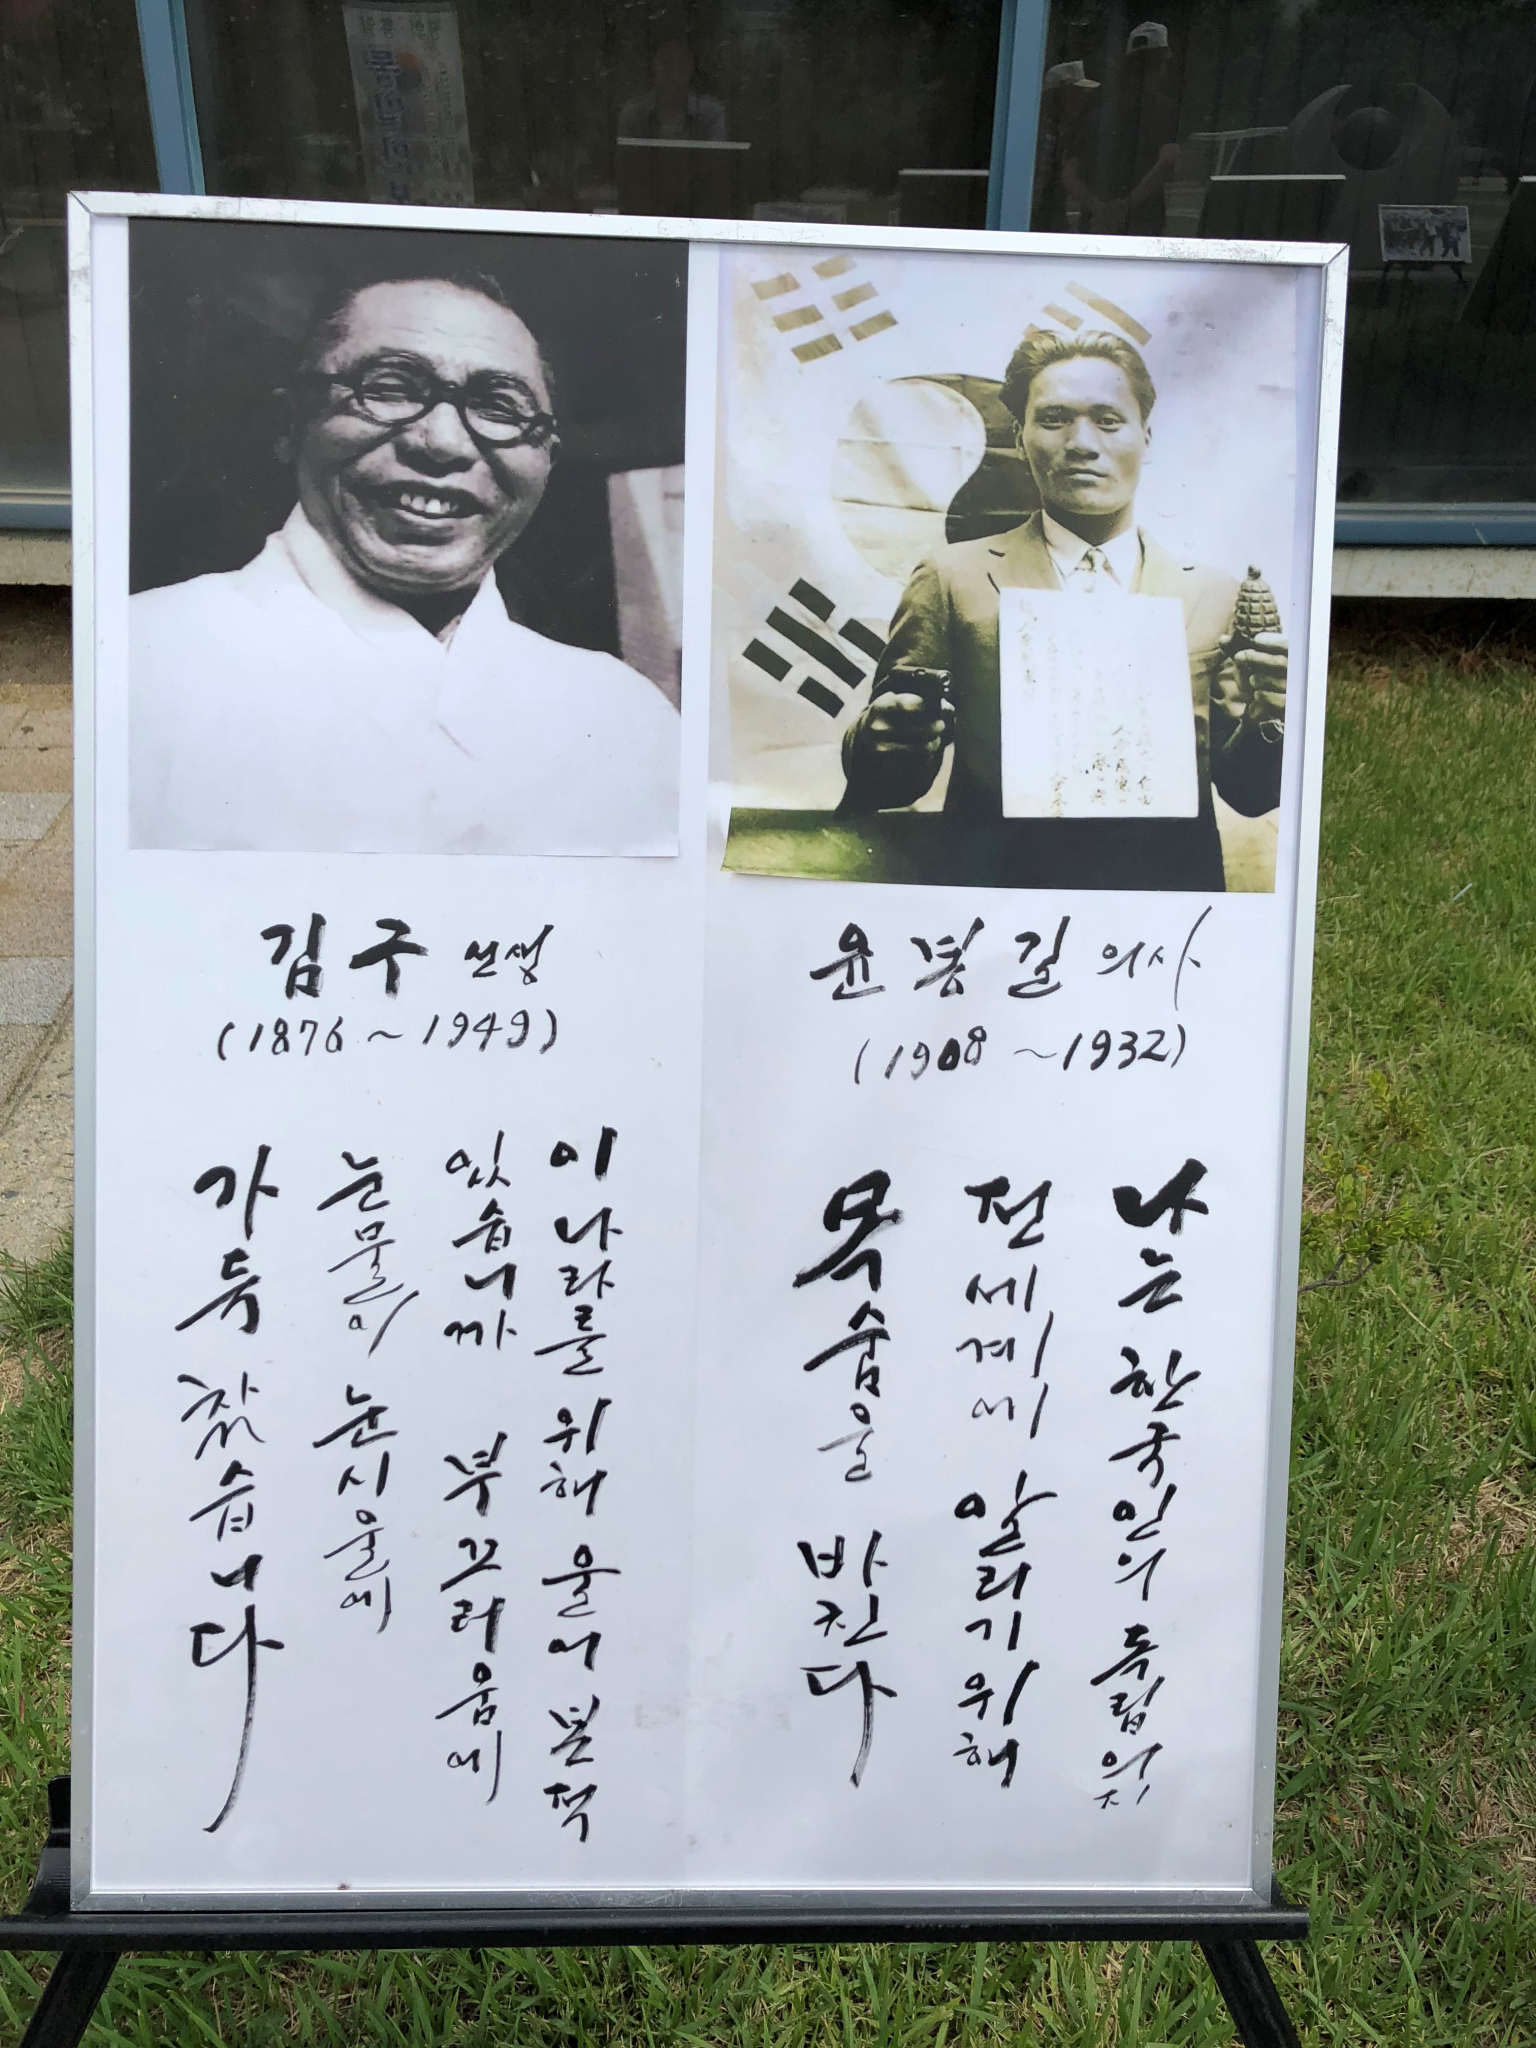 김구 선생
(1876~1949)
이 나라를 위해 울어 본적
있습니까 부끄러움에
눈물이 눈시울에
가득 찼습니다
윤봉길 의사
(1908~1932)
나는 한국인의 독립의지
전세계에 알리기 위해
목숨을 바친다